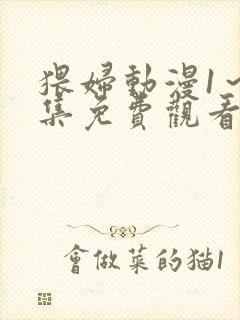 猥婦動漫1～
集免費觀看
會做菜的猫1